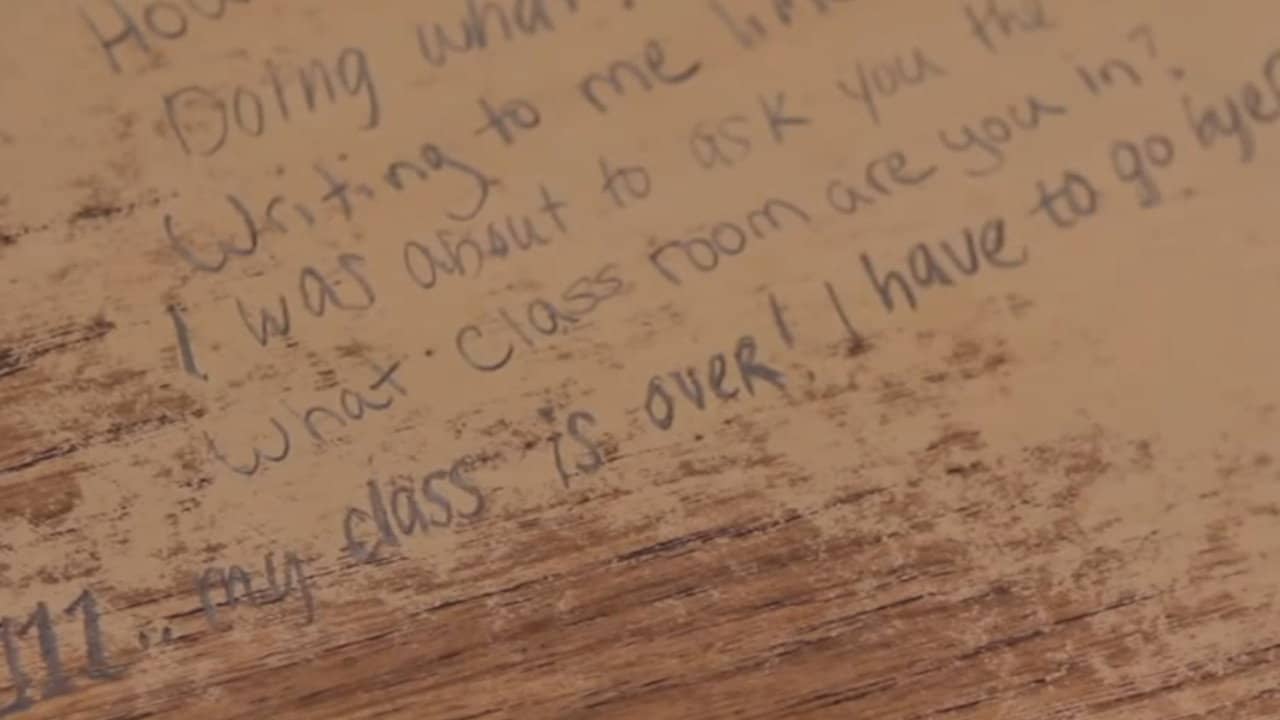 Doing what
Writing to me
I was about to ask you the
What class room are you in?
my class is over! I have to go bye